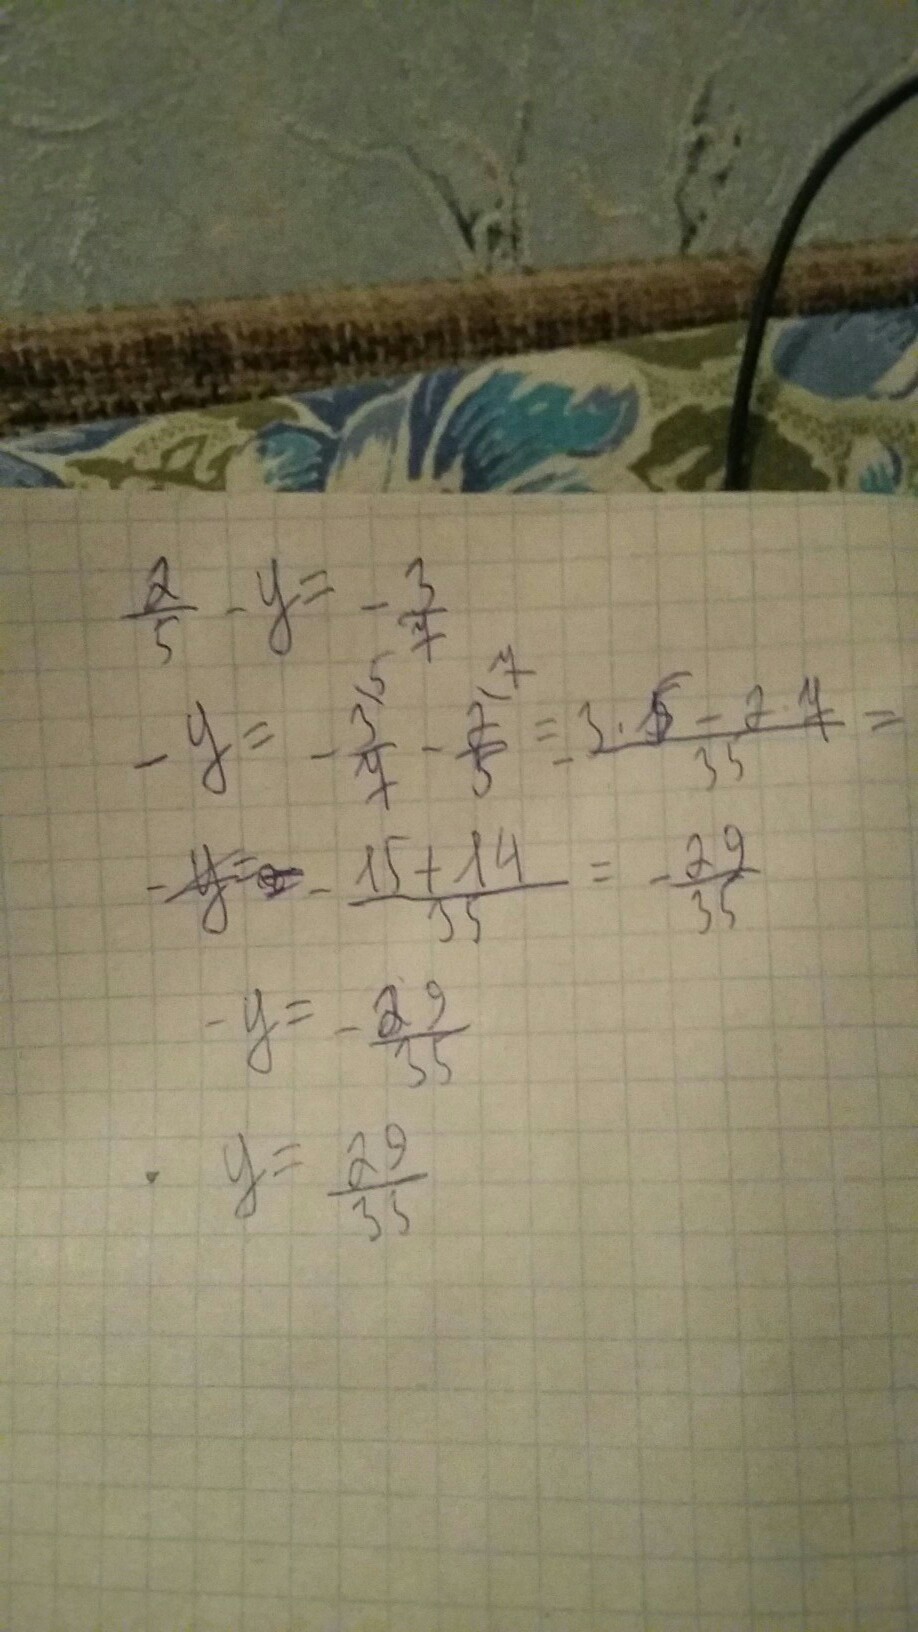 2/5 - y = - 3/7
- y = - 3/7 \5 - 2/5 \7 = - 3·5 - 2·7/35 =
- y = - 15+14/35 = - 29/35
- y = - 29/35
y = 29/35